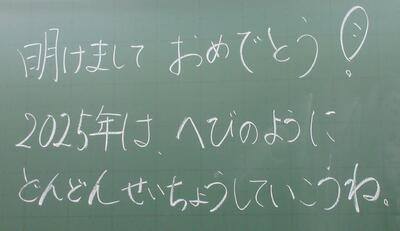 明けまして おめでとう!
2025年は、へびのように
どんどんせいちょうしていこうね。